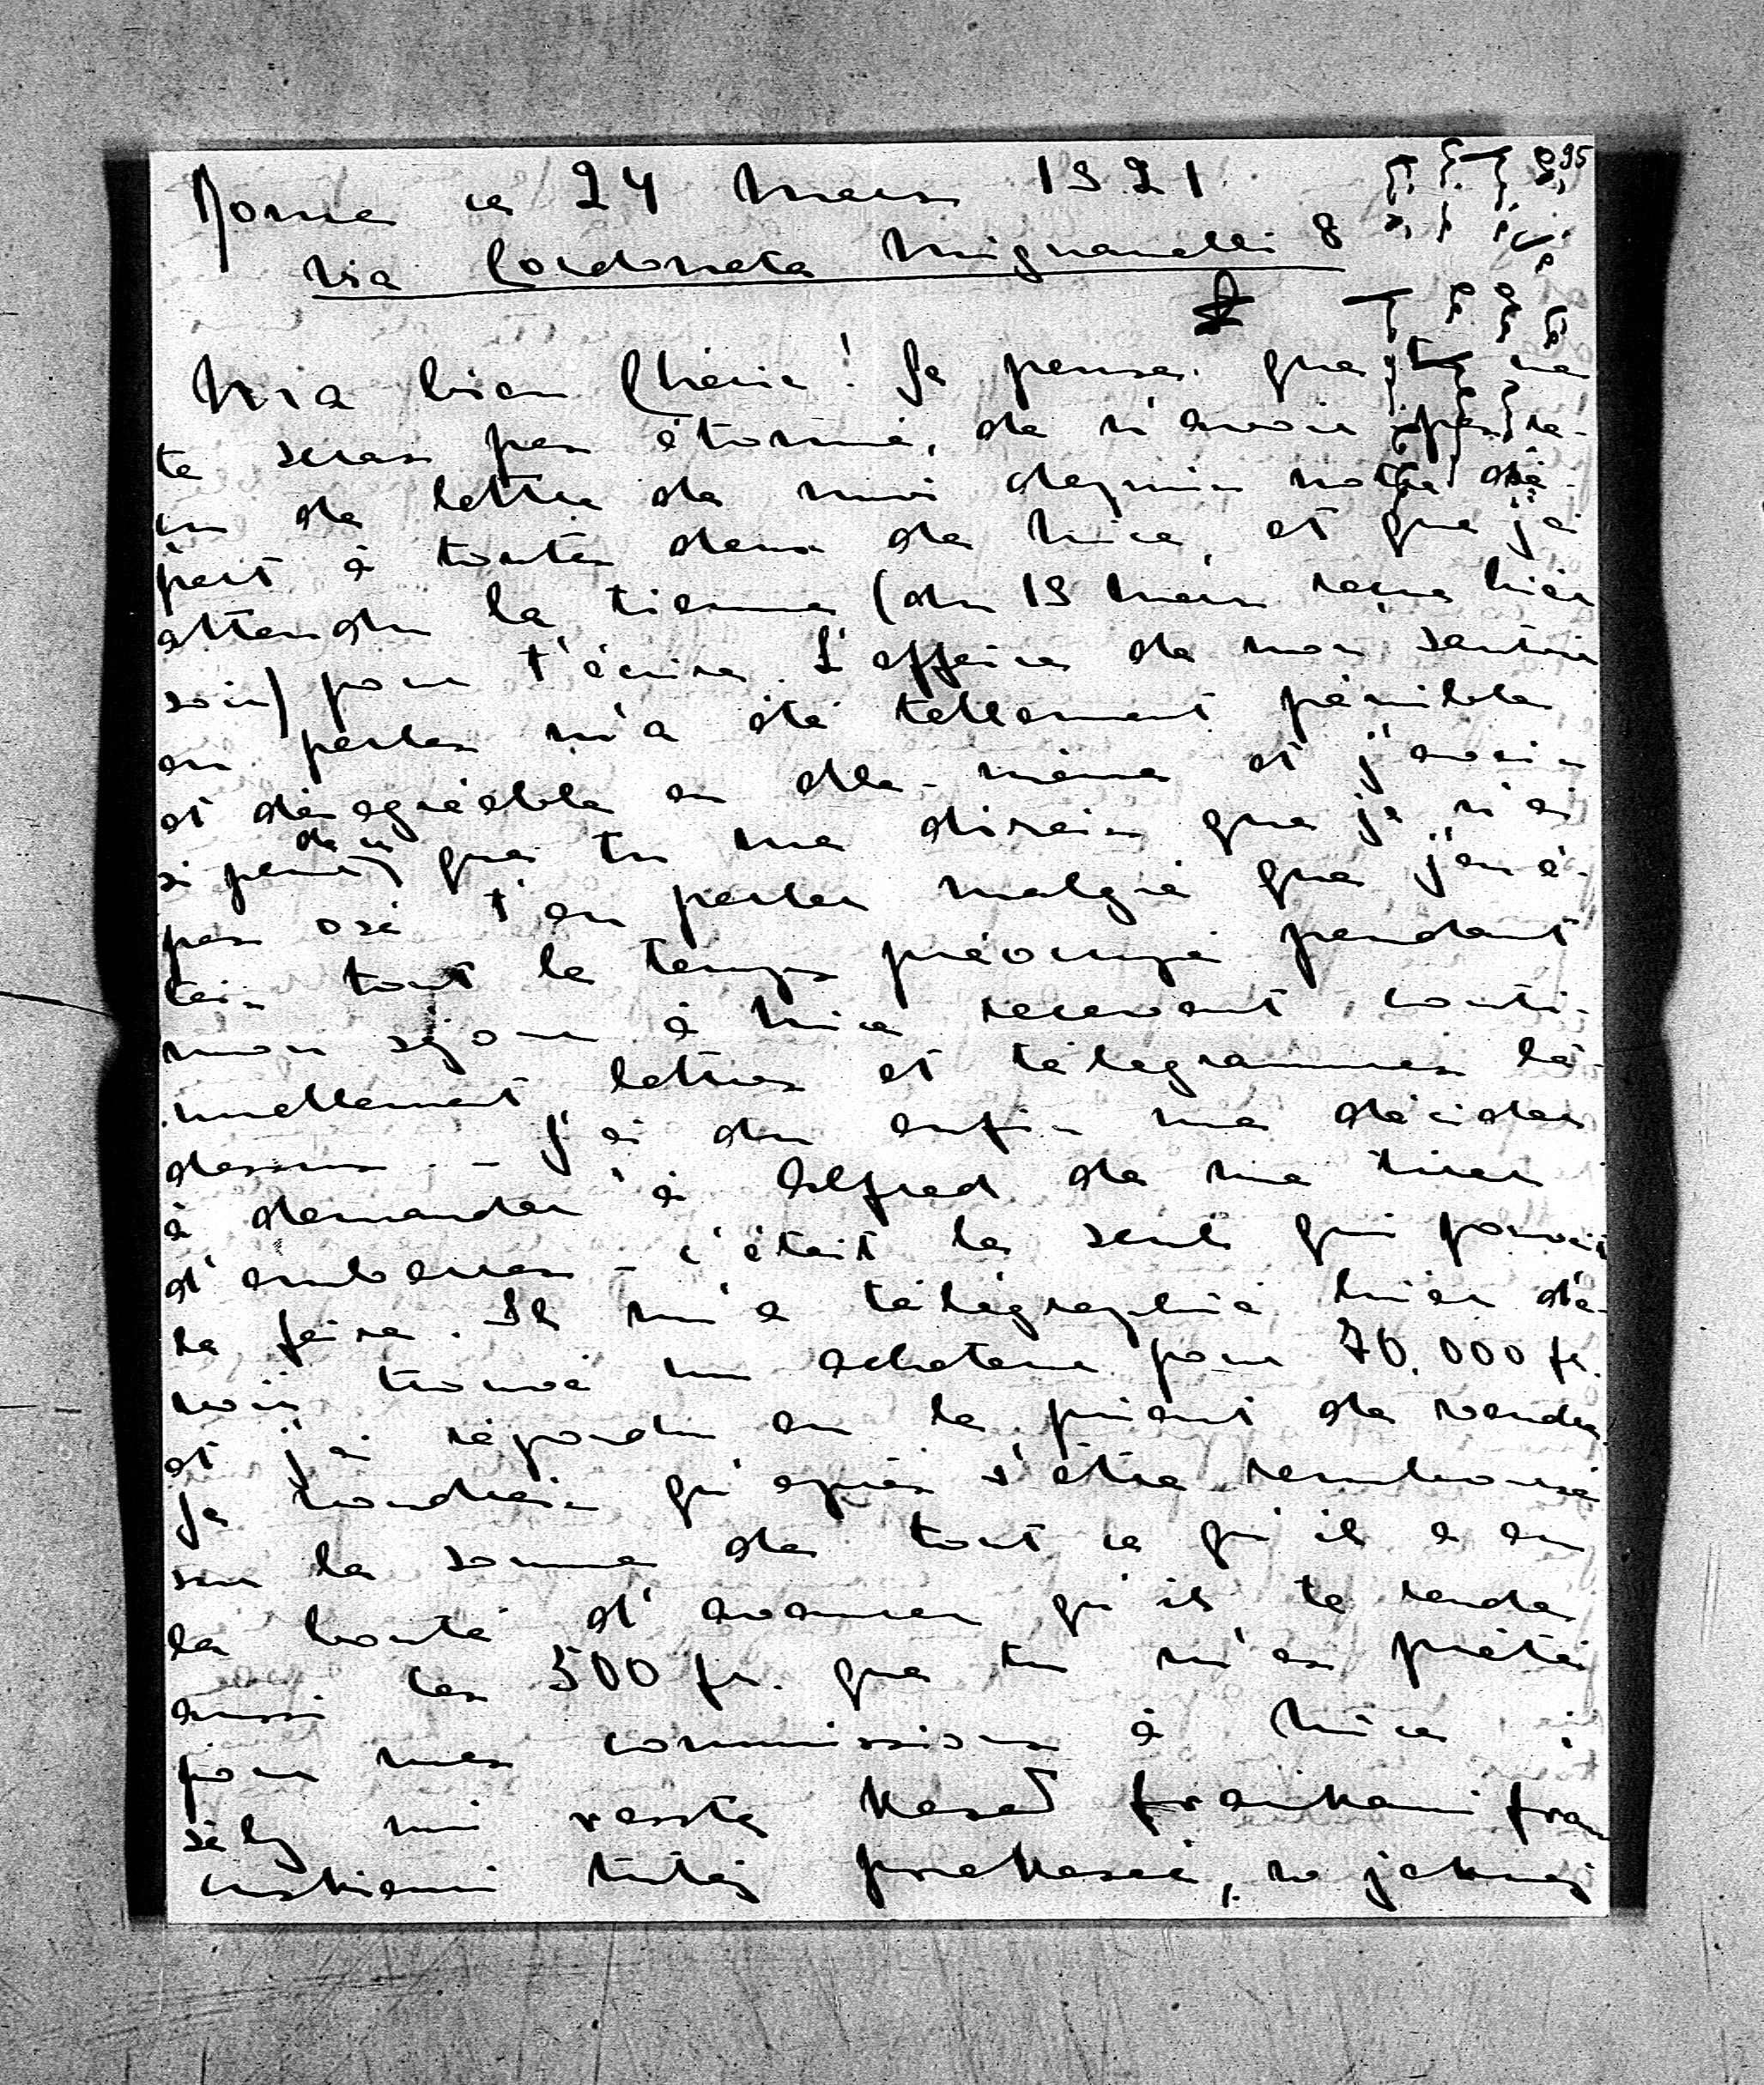 Rome ce 24 Mars 1921
Via Cordonata Mignanelli 8
95
Ma bien Chérie! Je pense que tu ne
te seras pas étonnée, de n'avoir pas re-
çu de lettre de moi depuis notre dé-
part à toutes deux de Nice, et que j'ai
attendu la tienne (du 19 Mars reçue hier
soir) pour t'écrire. L'affaire de mon sautoir
en perles m'a été tellement pénible
et désagréable en elle-même et j'avais
si peur de ce que tu me dirais que je n'ai
pas osé t'en parler malgré que j'en é-
tais tout le temps préoccupé pendant
mon séjour à Nice recevant conti-
nuellement lettres et télégrammes là-
dessus. - J'ai du enfin me décider
à demander à Alfred de me tirer
d'embarras - c'était le seul qui pouvait
le faire. Il m'a télégraphié hier d'a-
voir trouvé un acheteur pour 70.000 fr.
et j'ai répondu en le priant de vendre.
Je voudrais qu'après s'être remboursé
sur la somme de tout ce qu'il a eu
la bonté d'avancer qu'il te rende
aussi les 500 fr. que tu m'as prêtés
pour mes commissions à Nice;
żeby mi resztę kazał frankami fran
cuskiemi tutaj przekazać, w jakiej